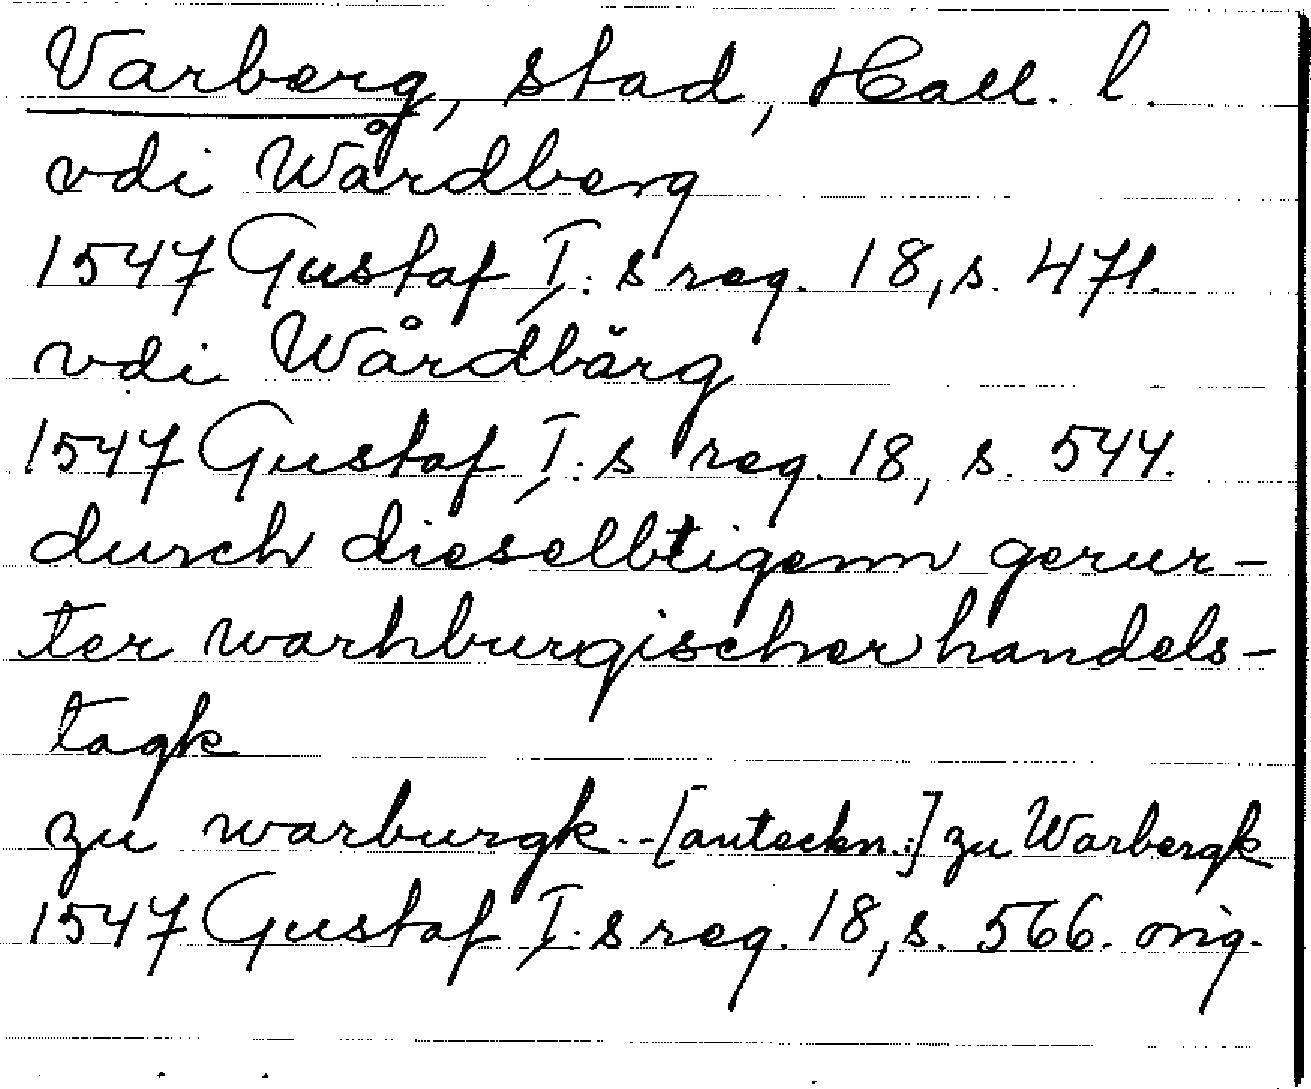 Varberg, stad, Hall. l.
vdi Wårdberg
1547 Gustaf I:s reg. 18, s. 471.
vdi Wårdbärg
1547 Gustaf I:s reg. 18, s. 544.
durch dieselbtigenn gerur-
ter warhburgischer handels-
tagk
zu warburgk.- [anteckn.:] zu Warbergk
1547 Gustaf I:s reg. 18, s. 566. orig.